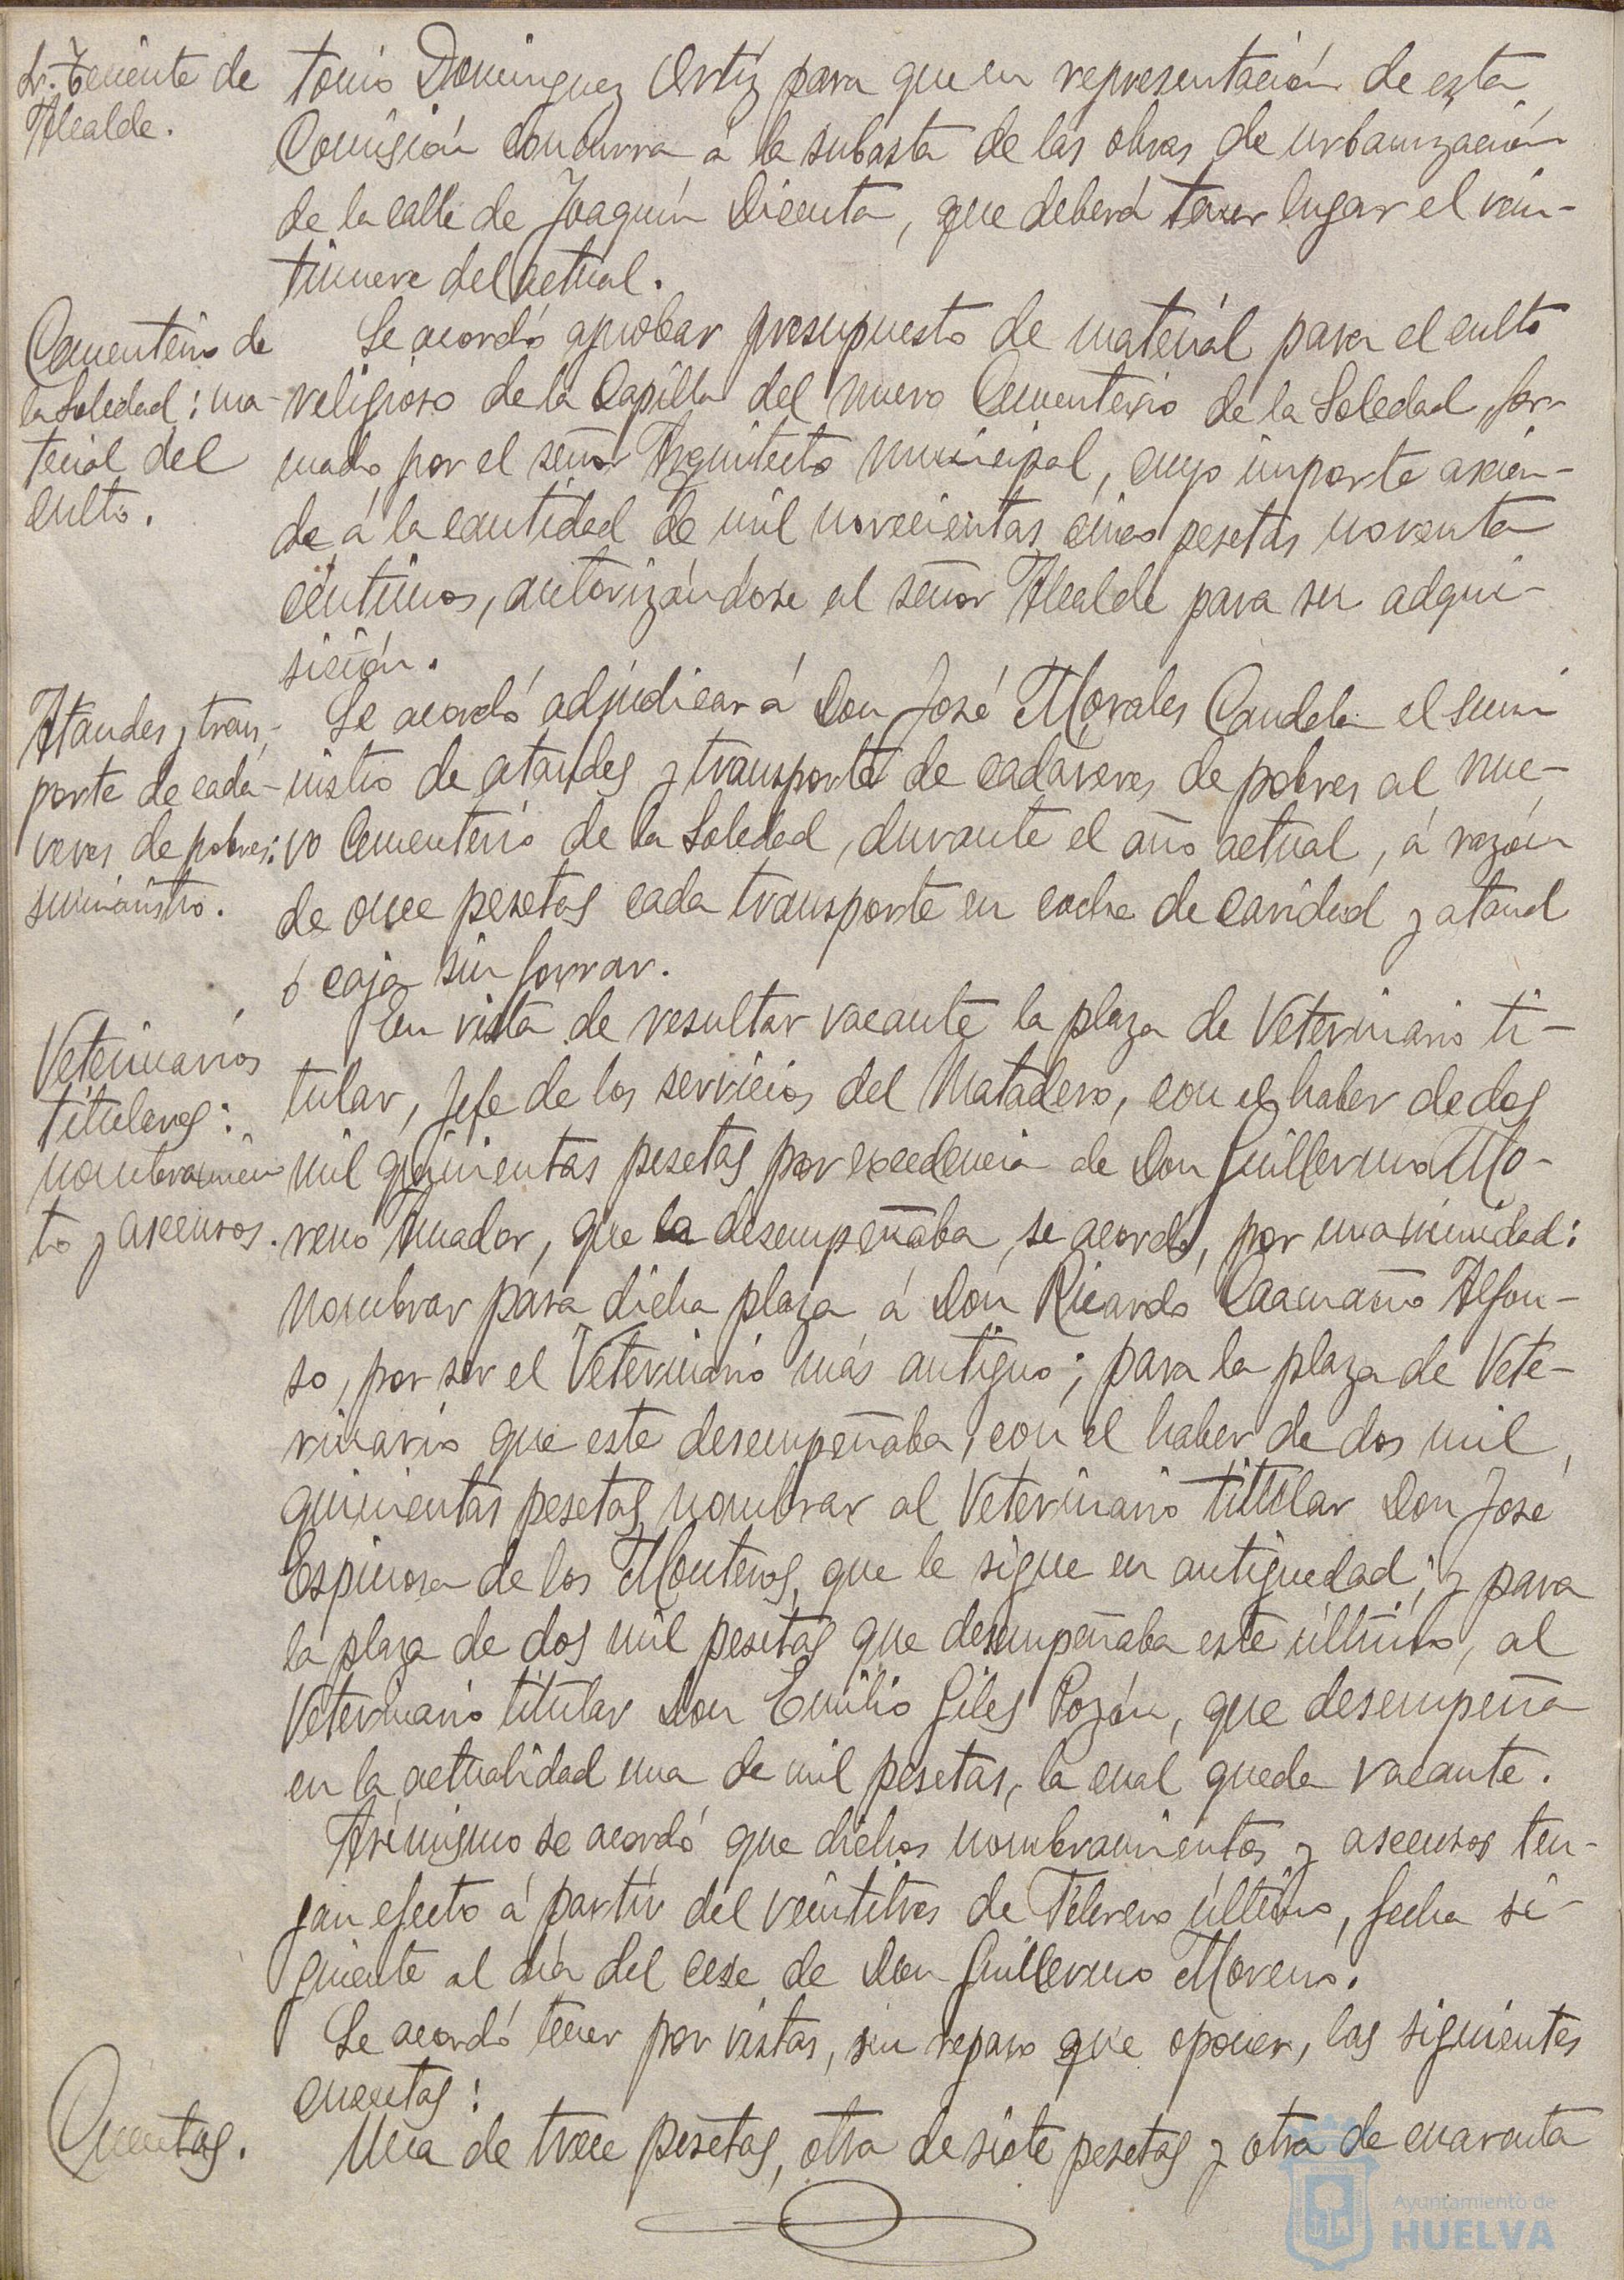 Sr. Teniente de
Alcalde.
tonio Dominguez Ortíz para que en representación de esta
Comisión concurra á la subasta de las obras de urbanización
de la calle de Joaquín Dicenta, que deberá tener lugar el vein-
tinueve del actual.
Cementerio de
la Soledad: ma-
terial del
culto.
Se acordó aprobar presupuesto de material para el culto
religioso de la Capilla del nuevo Cementerio de la Soledad, for-
mado por el señor Arquitecto municipal, cuyo importe ascien-
de á la cantidad de mil novecientas cinco pesetas noventa
céntimos, autorizándose al señor Alcalde para su adqui-
sición.
Ataudes y trans-
porte de cadá-
veres de pobres:
suministro.
Se acordó adjudicar á Don José Morales Candela el sumi
nistro de ataudes y transporte de cadáveres de pobres al nue-
vo Cementerio de la Soledad, durante el año actual, á razón
de once pesetas cada transporte en coche de caridad y ataud
ó caja sin forrar.
Veterinarios
titulares:
nombramien
to y ascensos.
En vista de resultar vacante la plaza de Veterinario ti-
tular, Jefe de los servicios del Matadero, con el haber de dos
mil quinientas pesetas por excedencia de Don Guillermo Mo-
reno Amador, que la desempeñaba, se acordó, por unanimidad:
nombrar para dicha plaza á Don Ricardo Caamaño Alfon-
so, por ser el Veterinario más antiguo; para la plaza de Vete-
rinario que este desempeñaba, con el haber de dos mil
quinientas pesetas, nombrar al Veterinario titular Don José
Espinosa de los Monteros, que le sigue en antiguedad; y para
la plaza de dos mil pesetas que desempeñaba este último, al
Veterinario titular Don Emilio Giles Pozón, que desempeña
en la actualidad una de mil pesetas, la cual queda vacante.
Asímismo se acordó que dichos nombramientos y ascensos ten-
gan efecto á partir del veintitres de Febrero último, fecha si-
guiente al día del cese de Don Guillermo Moreno.
Se acordó tener por vistas, sin reparo que oponer, las siguientes
cuentas:
Cuentas.
Una de trece pesetas, otra de siete pesetas y otra de cuarenta
Ayuntamiento de
HUELVA